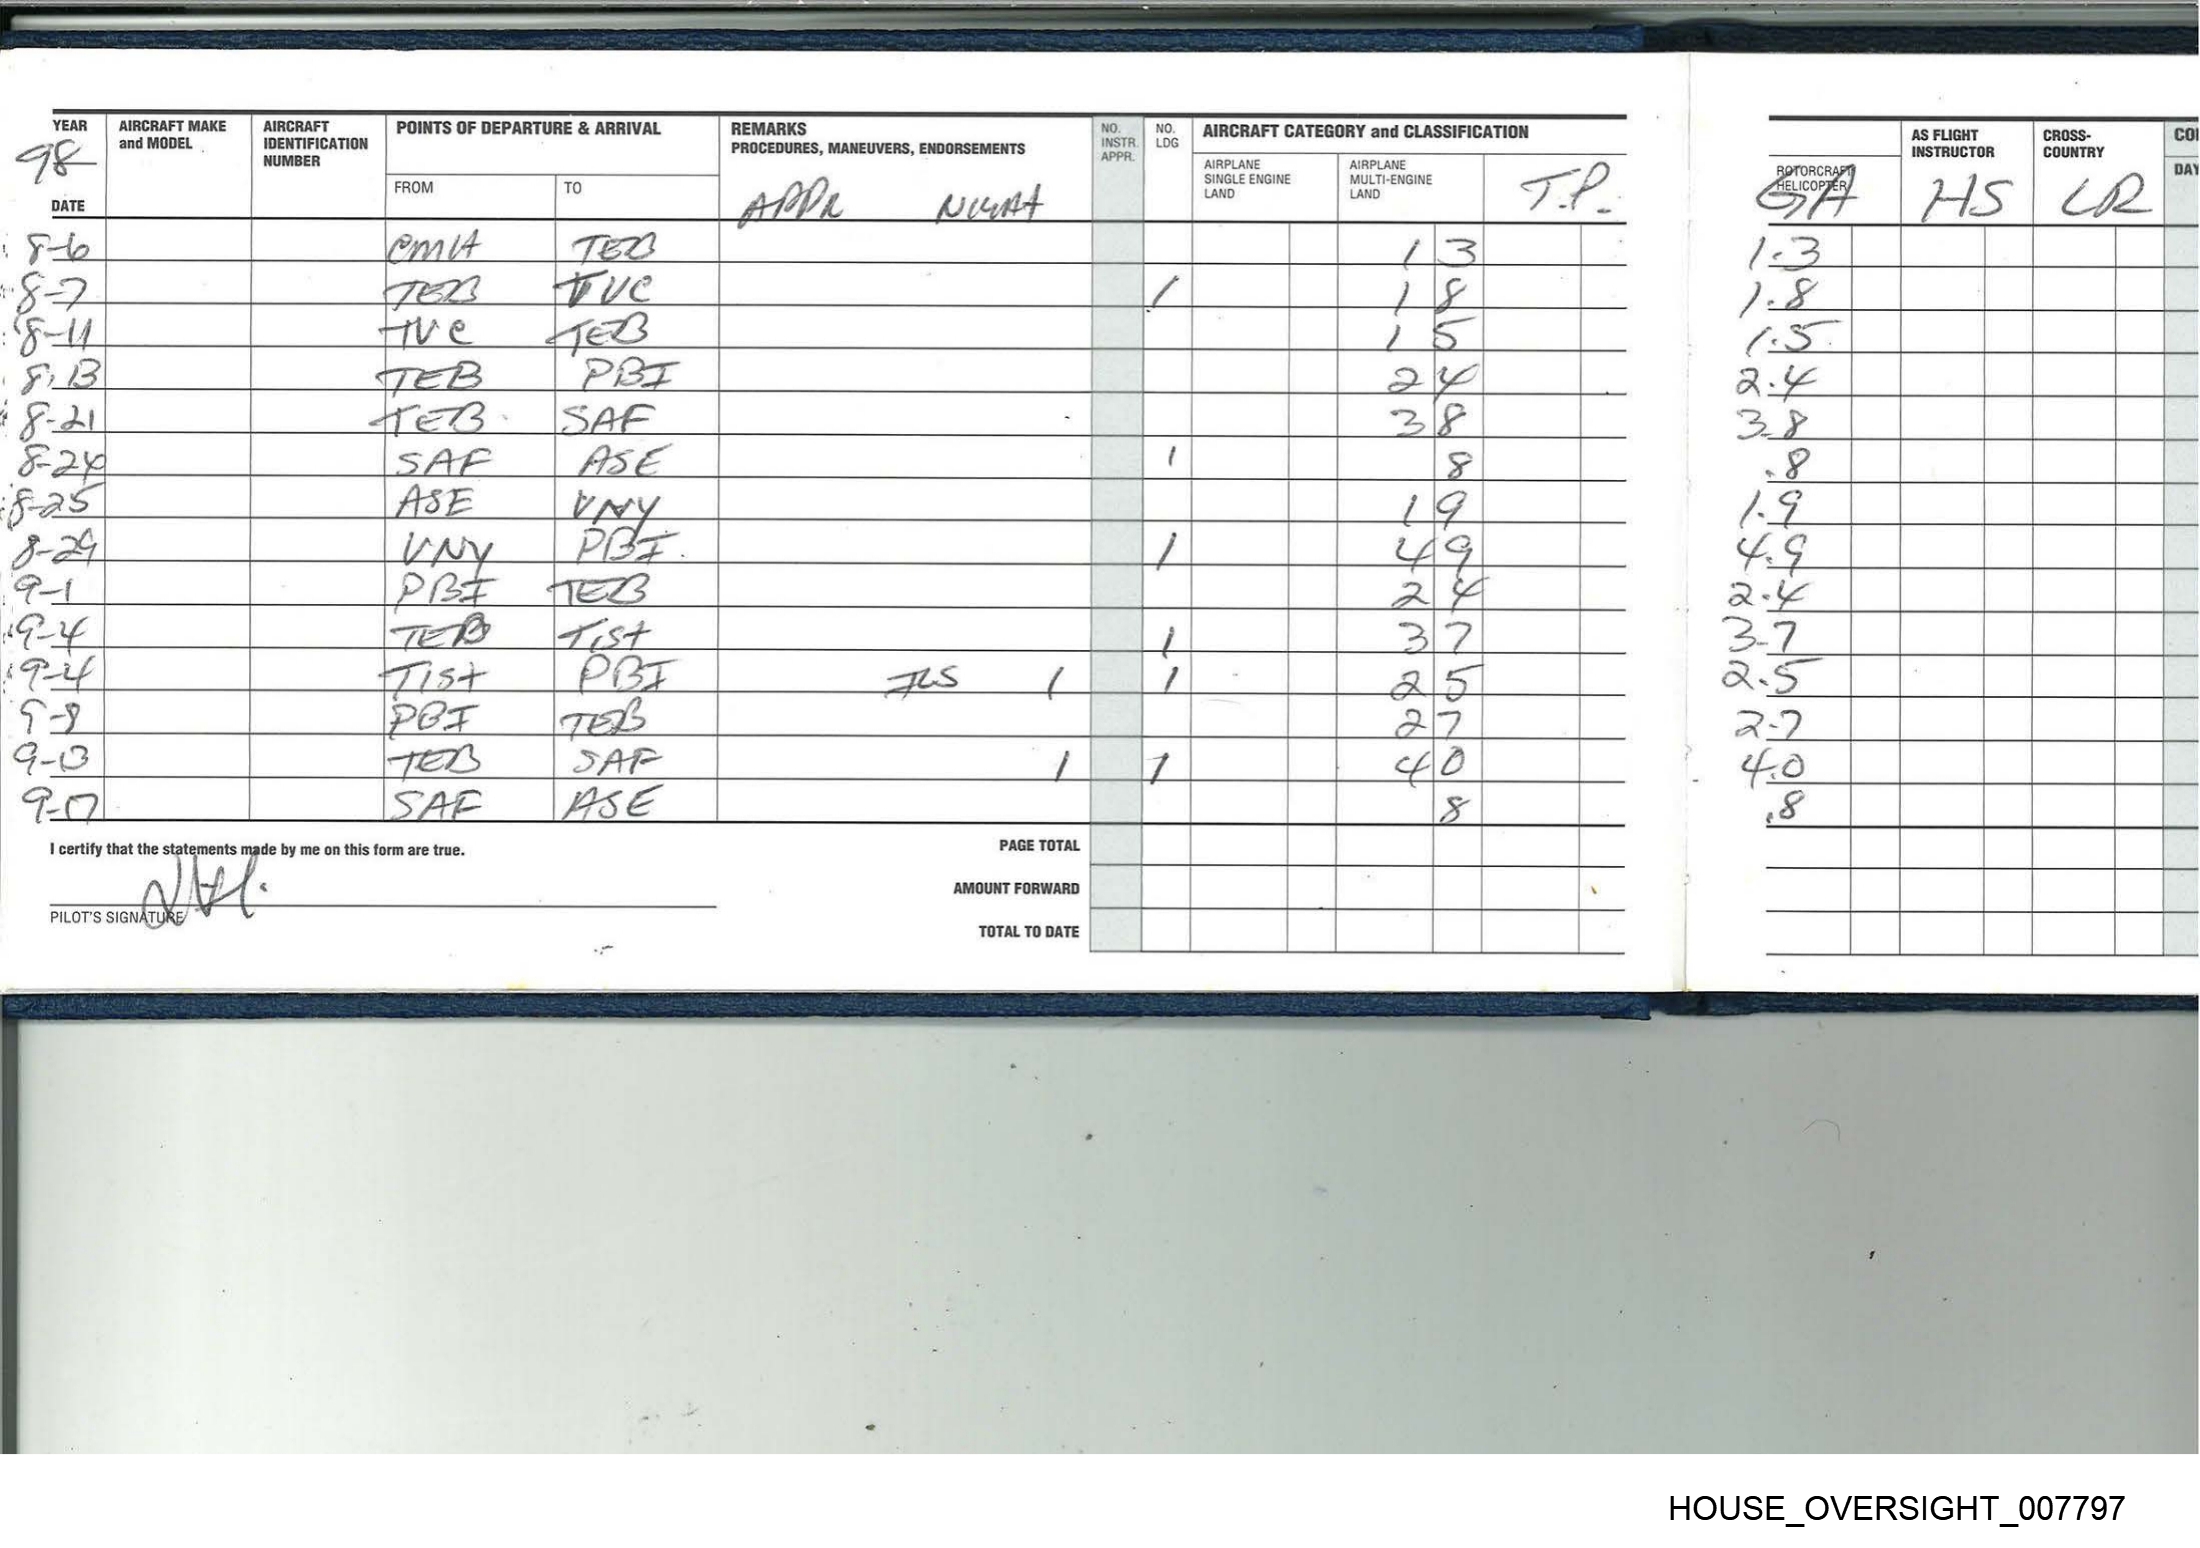 YEAR AIRCRAFT MAKE and MODEL AIRCRAFT IDENTIFICATION NUMBER POINTS OF DEPARTURE & ARRIVAL REMARKS PROCEDURES, MANEUVERS, ENDORSEMENTS NO. INSTR. APPR. NO. LDG AIRCRAFT CATEGORY and CLASSIFICATION AS FLIGHT INSTRUCTOR CROSS-COUNTRY
98 AIRPLANE SINGLE ENGINE LAND AIRPLANE MULTI-ENGINE LAND T.P. ROTORCRAFT HELICOPTER DAY
DATE FROM TO APPR GA HS LR
8-6 TEB 1 3 1.3
8-7 TEB TVC 1 1 8 1.8
8-11 TVC TEB 1 5 1.5
8-13 TEB PBI 2 4 2.4
8-21 TEB SAF 3 8 3.8
8-24 SAF ASE 1 8 .8
8-25 ASE VNY 1 9 1.9
8-29 VNY PBI 1 4 9 4.9
9-1 PBI TEB 2 4 2.4
9-4 TEB TIST 1 3 7 3.7
9-4 TIST PBI ILS 1 1 2 5 2.5
9-8 PBI TEB 2 7 2.7
9-13 TEB SAF 1 1 4 0 4.0
9-17 SAF ASE 8 .8
I certify that the statements made by me on this form are true. PAGE TOTAL
AMOUNT FORWARD
PILOT'S SIGNATURE
TOTAL TO DATE
HOUSE_OVERSIGHT_007797